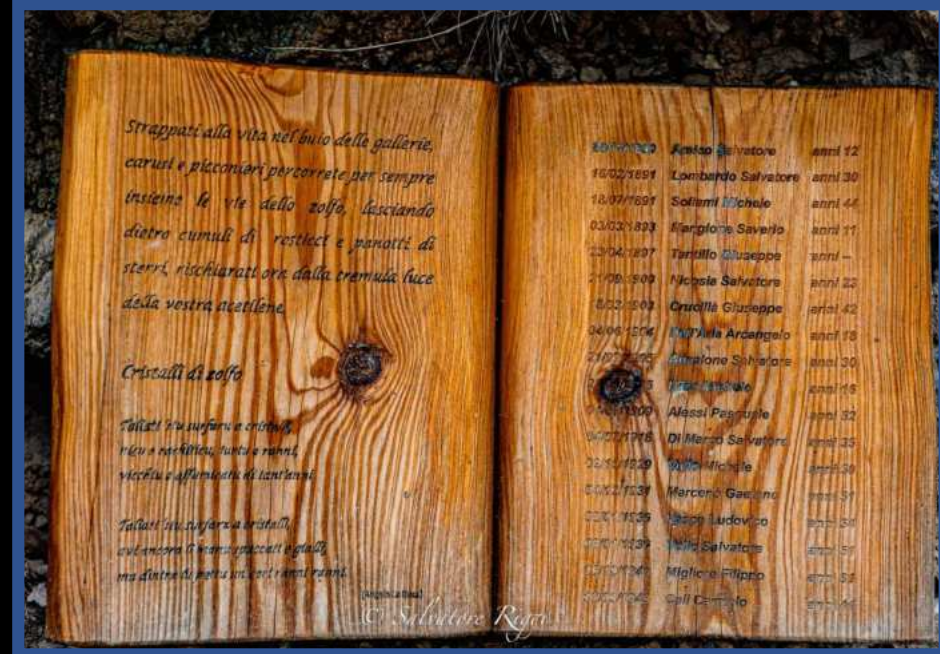 Strappati alla vita nel buio delle gallerie,
carusi e picconieri percorrete per sempre
insieme le vie dello zolfo, lasciando
dietro cumuli di rosticci e panotti di
sterri, rischiarati ora dalla tremula luce
della vostra acetilene.
Cristalli di zolfo
Taliati 'stu surfaru a cristalli,
nicu e rachiticu, tuttu a ranni,
vicchiu e affumicatu di tant'anni.
Taliati 'stu surfaru a cristalli,
avi ancora li manu spaccati e gialli,
ma dintra di pettu un cori ranni ranni.
Amico Salvatore anni 12
16/02/1891 Lombardo Salvatore anni 30
18/07/1891 Sollami Michele anni 44
03/03/1893 Mangione Saverio anni 11
23/04/1897 Tantillo Giuseppe anni –
21/09/1900 Nicosia Salvatore anni 23
18/03/1903 Crucillà Giuseppe anni 42
04/06/1904 Dell'Aria Arcangelo anni 18
Salvatore anni 30
anni 16
Alessi Pasquale anni 52
Di Marco Salvatore anni 35
Michele
Marceno Gaetano anni 31
Ludovico
Salvatore
Migliore Filippo
Calì
© Salvatore Riggi